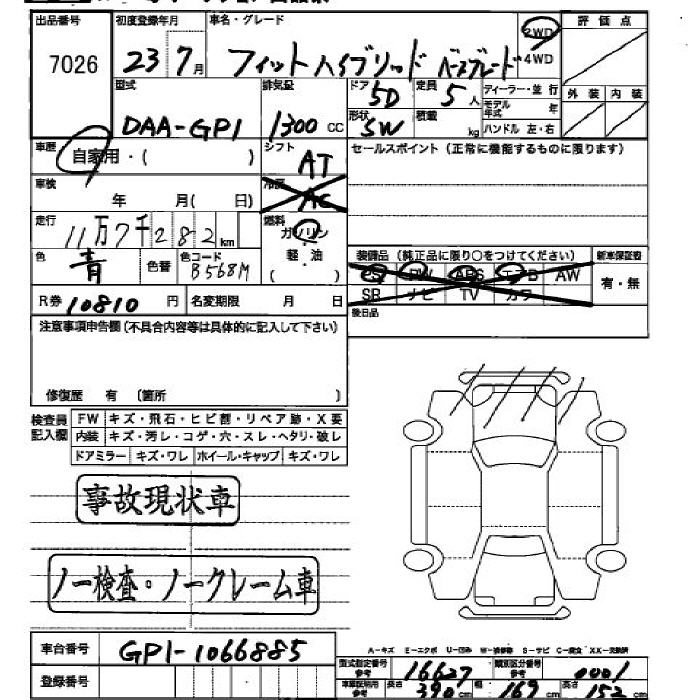 出品番号 初度登録年月 車名・グレード 2WD 評価点
7026 23 7月 フィットハイブリッド ベースグレード 4WD
型式 排気量 ドア 5D 定員 5人 ディーラー・並行 外装 内装
DAA-GP1 1300cc 形状 SW 積載 kg モデル年式 年
ハンドル 左・右
車歴 自家用・( ) シフト AT セールスポイント(正常に機能するものに限ります)
車検 年 月( 日) 冷房 AC
走行 11万7千282km 燃料 ガソリン
軽・油
( )
色 青 色替 色コード B568M 装備品(純正品に限り○をつけてください) 新車保証書
PS PW ABS エアB AW 有・無
SR ナビ TV カワ
R券 10810円 名変期限 月 日 後日品
注意事項申告欄(不具合内容等は具体的に記入して下さい)
修復歴 有 〔箇所 〕
検査員記入欄 FW キズ・飛石・ヒビ割・リペア跡・X要
内装 キズ・汚レ・コゲ・穴・スレ・ヘタリ・破レ
ドアミラー キズ・ワレ ホイール・キャップ キズ・ワレ
事故現状車
ノー検査・ノークレーム車
車台番号 GP1-1066885
登録番号
A-キズ E-エクボ U-凹み W-補修跡 S-サビ C-腐食 XX-交換済
型式指定番号 参考 16627 類別区分番号 参考 0001
車車証明用 参考 長さ 390cm 幅 169cm 高さ 152cm